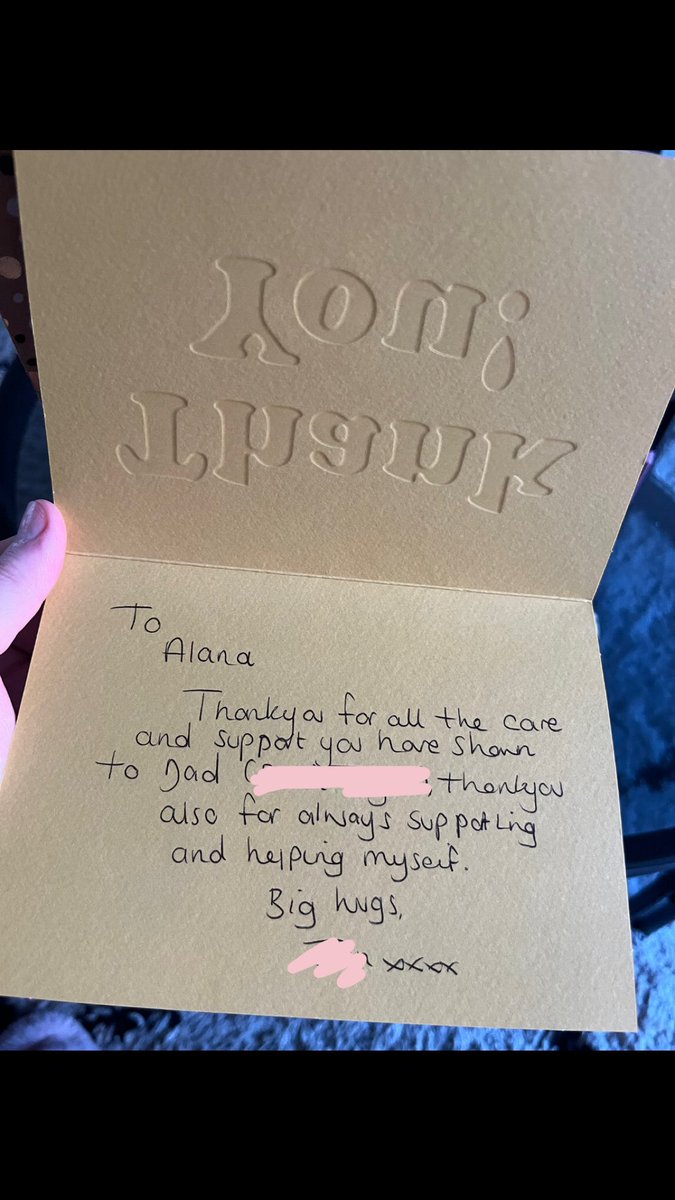 Thank
You!
To
Alana
Thankyou for all the care
and support you have shown
to Dad (, thankyou
also for always supporting
and helping myself.
Big hugs,
xxxx